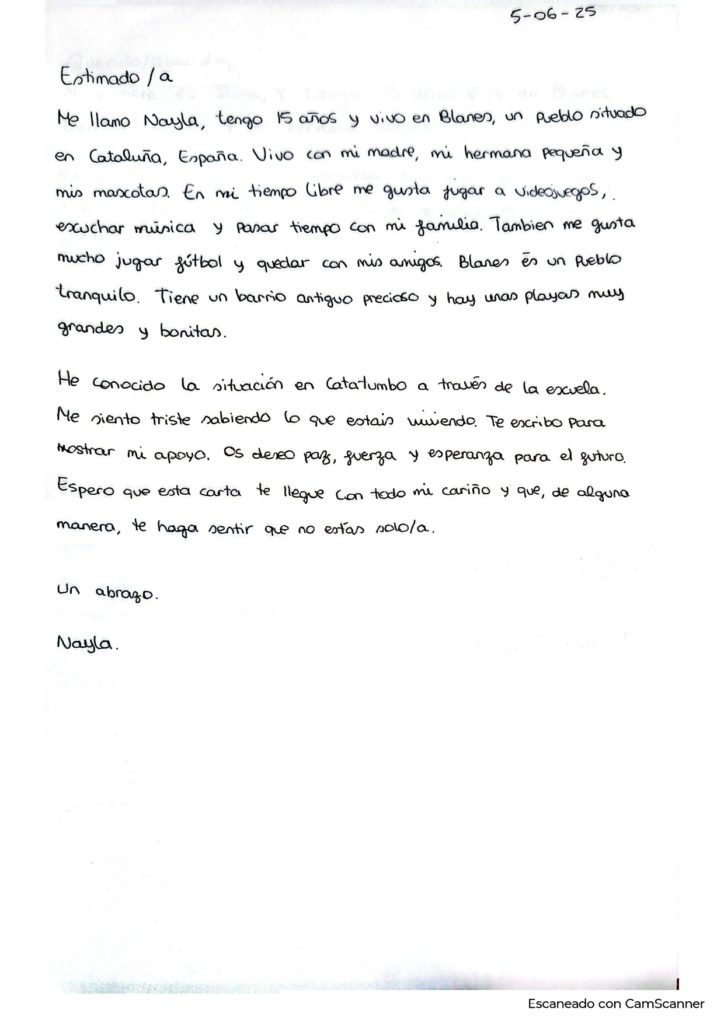 5-06-25
Estimado/a
Me llamo Nayla, tengo 15 años y vivo en Blanes, un pueblo situado
en Cataluña, España. Vivo con mi madre, mi hermana pequeña y
mis mascotas. En mi tiempo libre me gusta jugar a videojuegos,
escuchar música y pasar tiempo con mi familia. Tambien me gusta
mucho jugar fútbol y quedar con mis amigos. Blanes és un pueblo
tranquilo. Tiene un barrio antiguo precioso y hay unas playas muy
grandes y bonitas.
He conocido la situación en Catatumbo a través de la escuela.
Me siento triste sabiendo lo que estais viviendo. Te escribo para
mostrar mi apoyo. Os deseo paz, fuerza y esperanza para el futuro.
Espero que esta carta te llegue con todo mi cariño y que, de alguna
manera, te haga sentir que no estás solo/a.
Un abrazo.
Nayla.
Escaneado con CamScanner